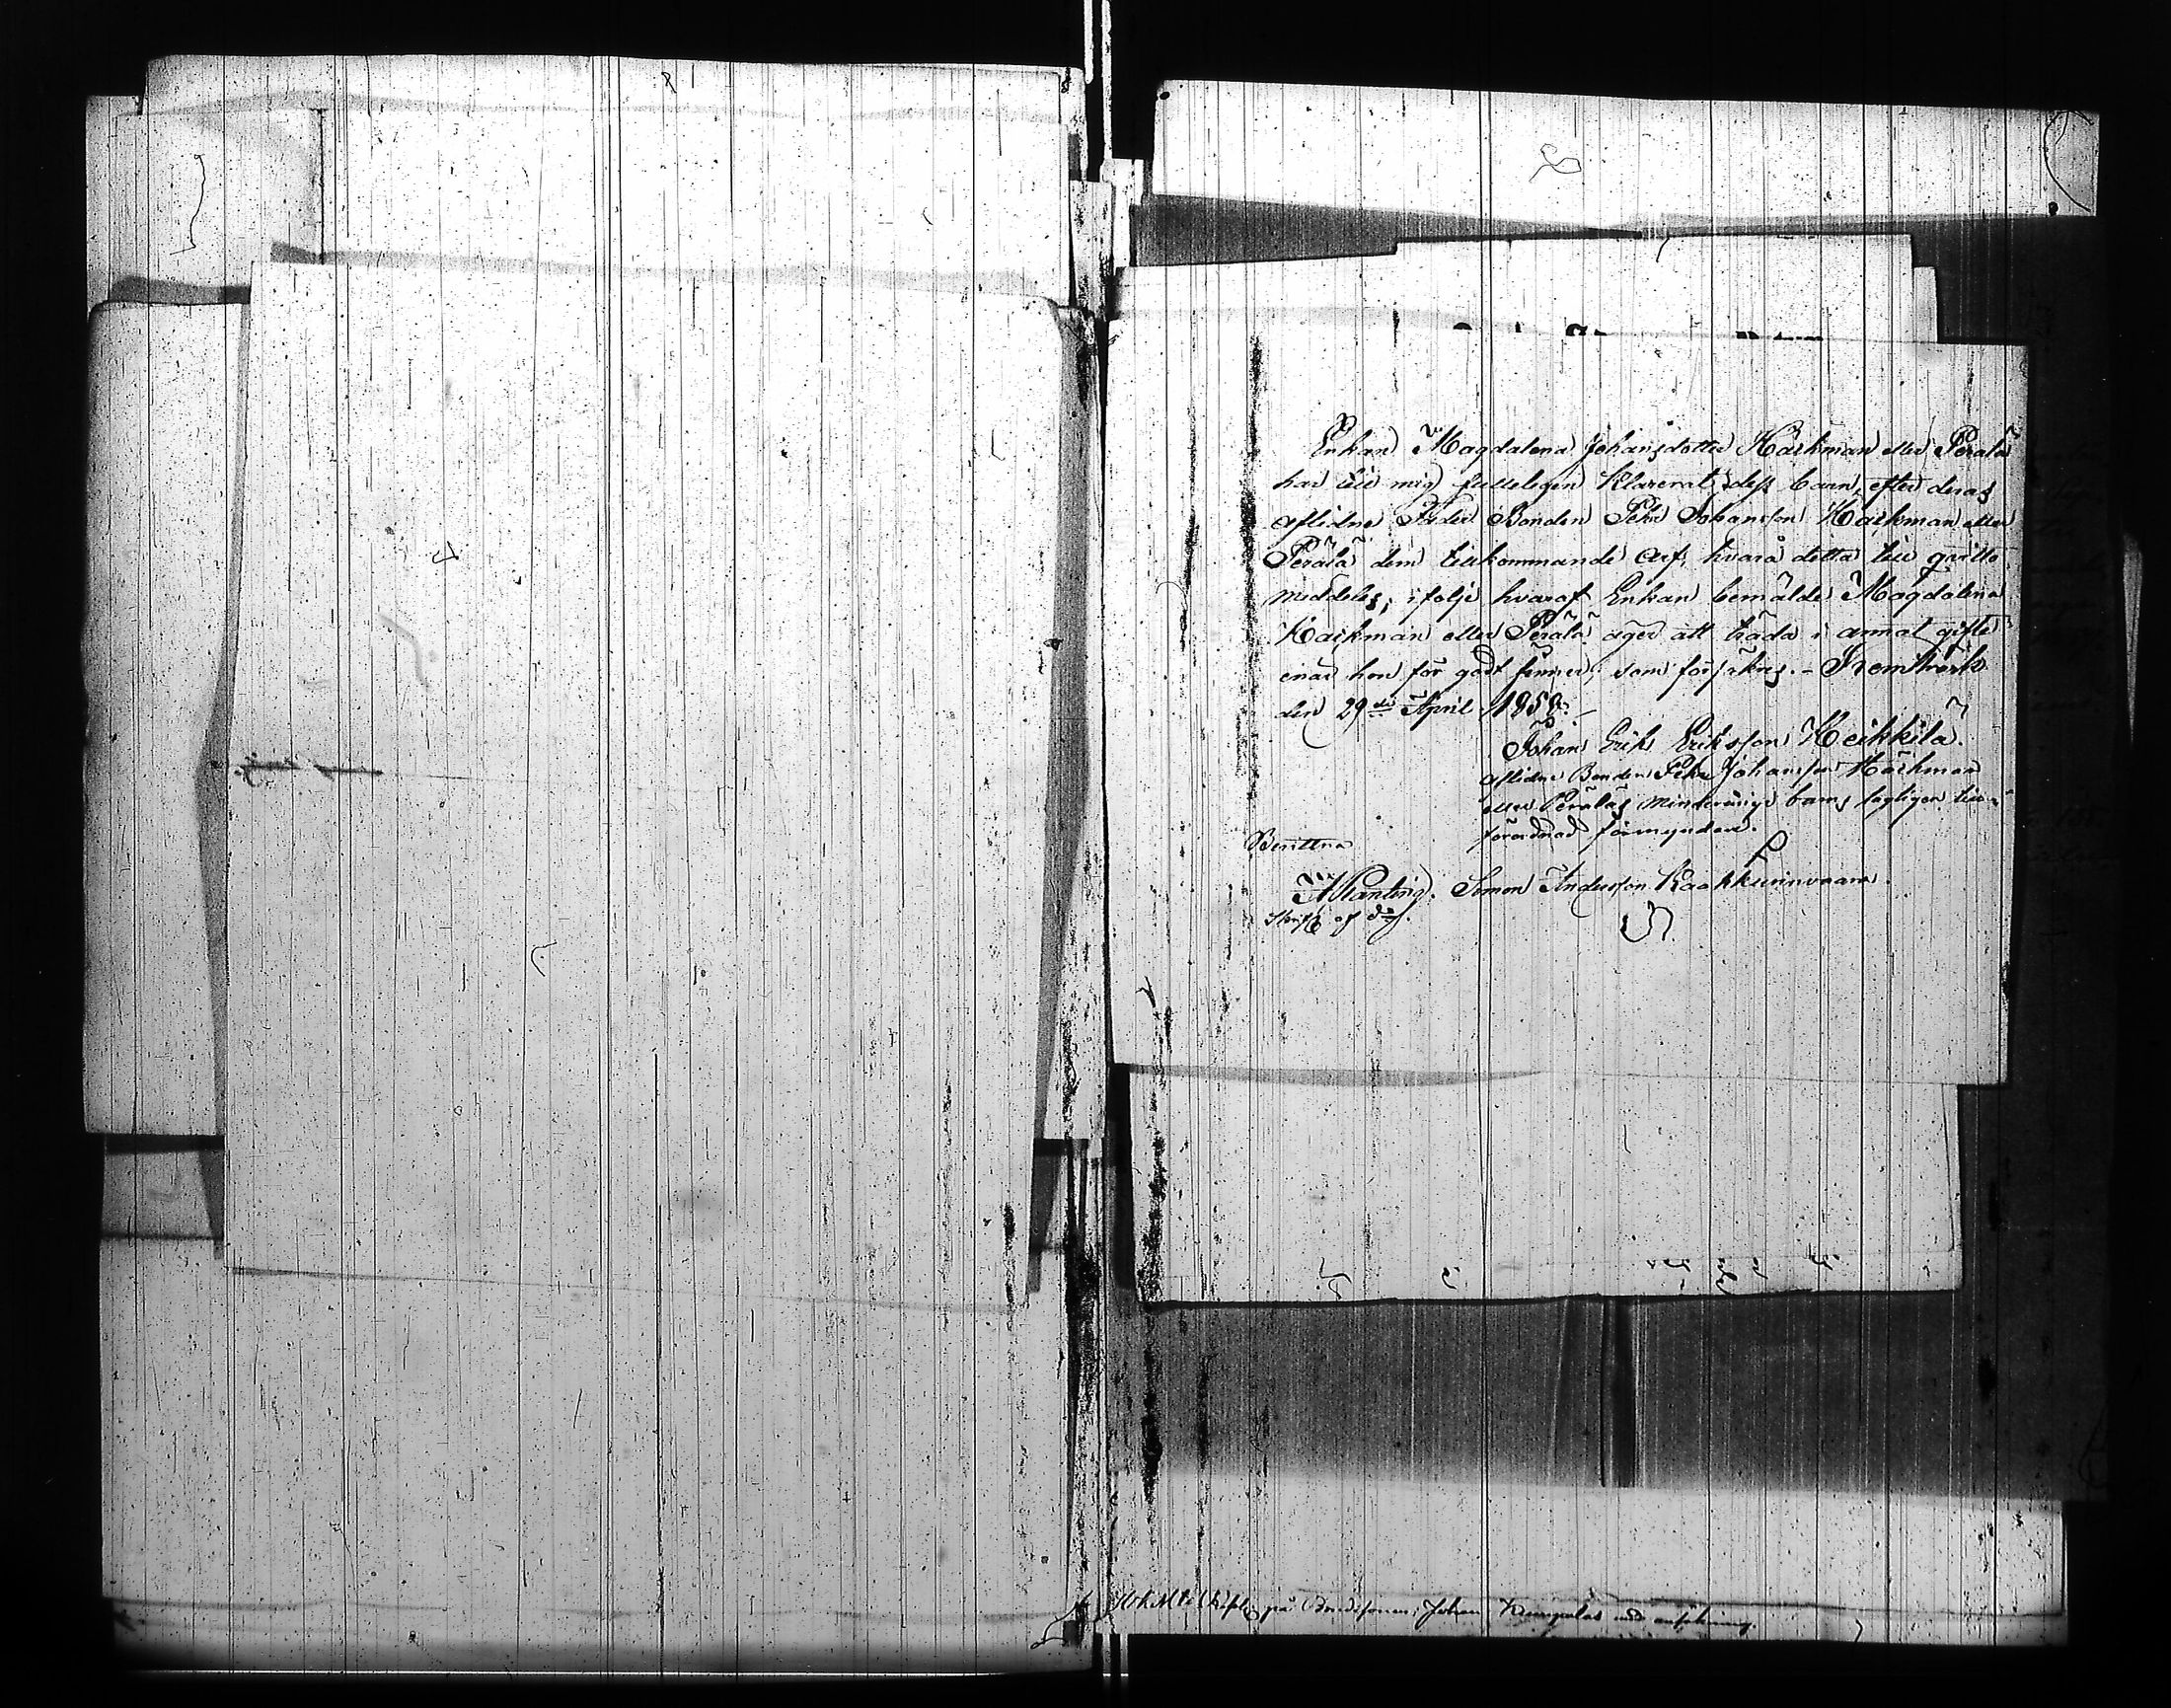 Enkan Magdalena Johansdotter Härkman eller Perälä
har till mig fullelegen klarerat dess barn, efter deras
aflidne Fader Bonden Pehr Johansson Härkman eller
Perälä dem tillkommande Arf, hvarå detta till qvitto
meddeles; i följe hvaraf Enkan bemälde Magdalena
Härkman eller Perälä äger att träda i annat gifte
enär hon för godt finner, som försäkras. – Kemiträsk
den 29de April 1858.
Johan Erik Eriksson Heikkilä.
aflidne Bonden Pehr Johansson Härkman
eller Peräläs minderårige barns lagligen till-
förordnad förmyndare.
Bevittna
A Planting. Simon Andersson Kaakkurinvaara.
på Johan Kumpulas ansökning.